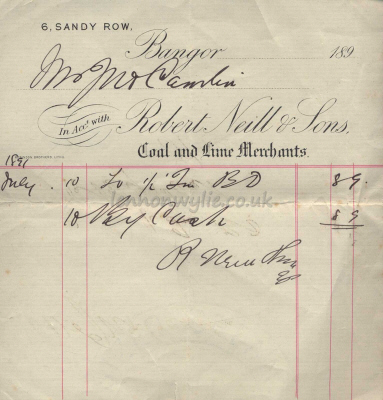 6, SANDY ROW,
Bangor 189
Mr Jno
In Acct with
Robert Neill & Sons,
Coal and Lime Merchants.
1891
July 10 To ½ Ton 8 9
10 By Cash 8 9
R Neill & Sons
lennonwylie.co.uk